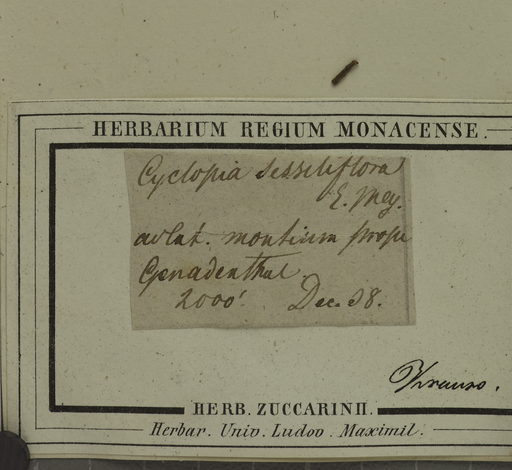 HERBARIUM REGIUM MONACENSE.
Cyclopia sessiliflora
E. Mey.
ad lat. montium prope
Genadenthal.
2000'. Dec. 38.
Krauss.
HERB. ZUCCARINII.
Herbar. Univ. Ludov. Maximil.